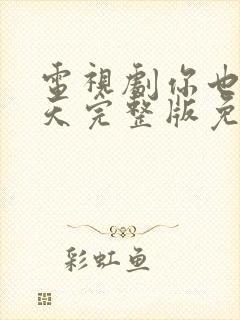 電視劇你也
天完整版免
彩虹鱼